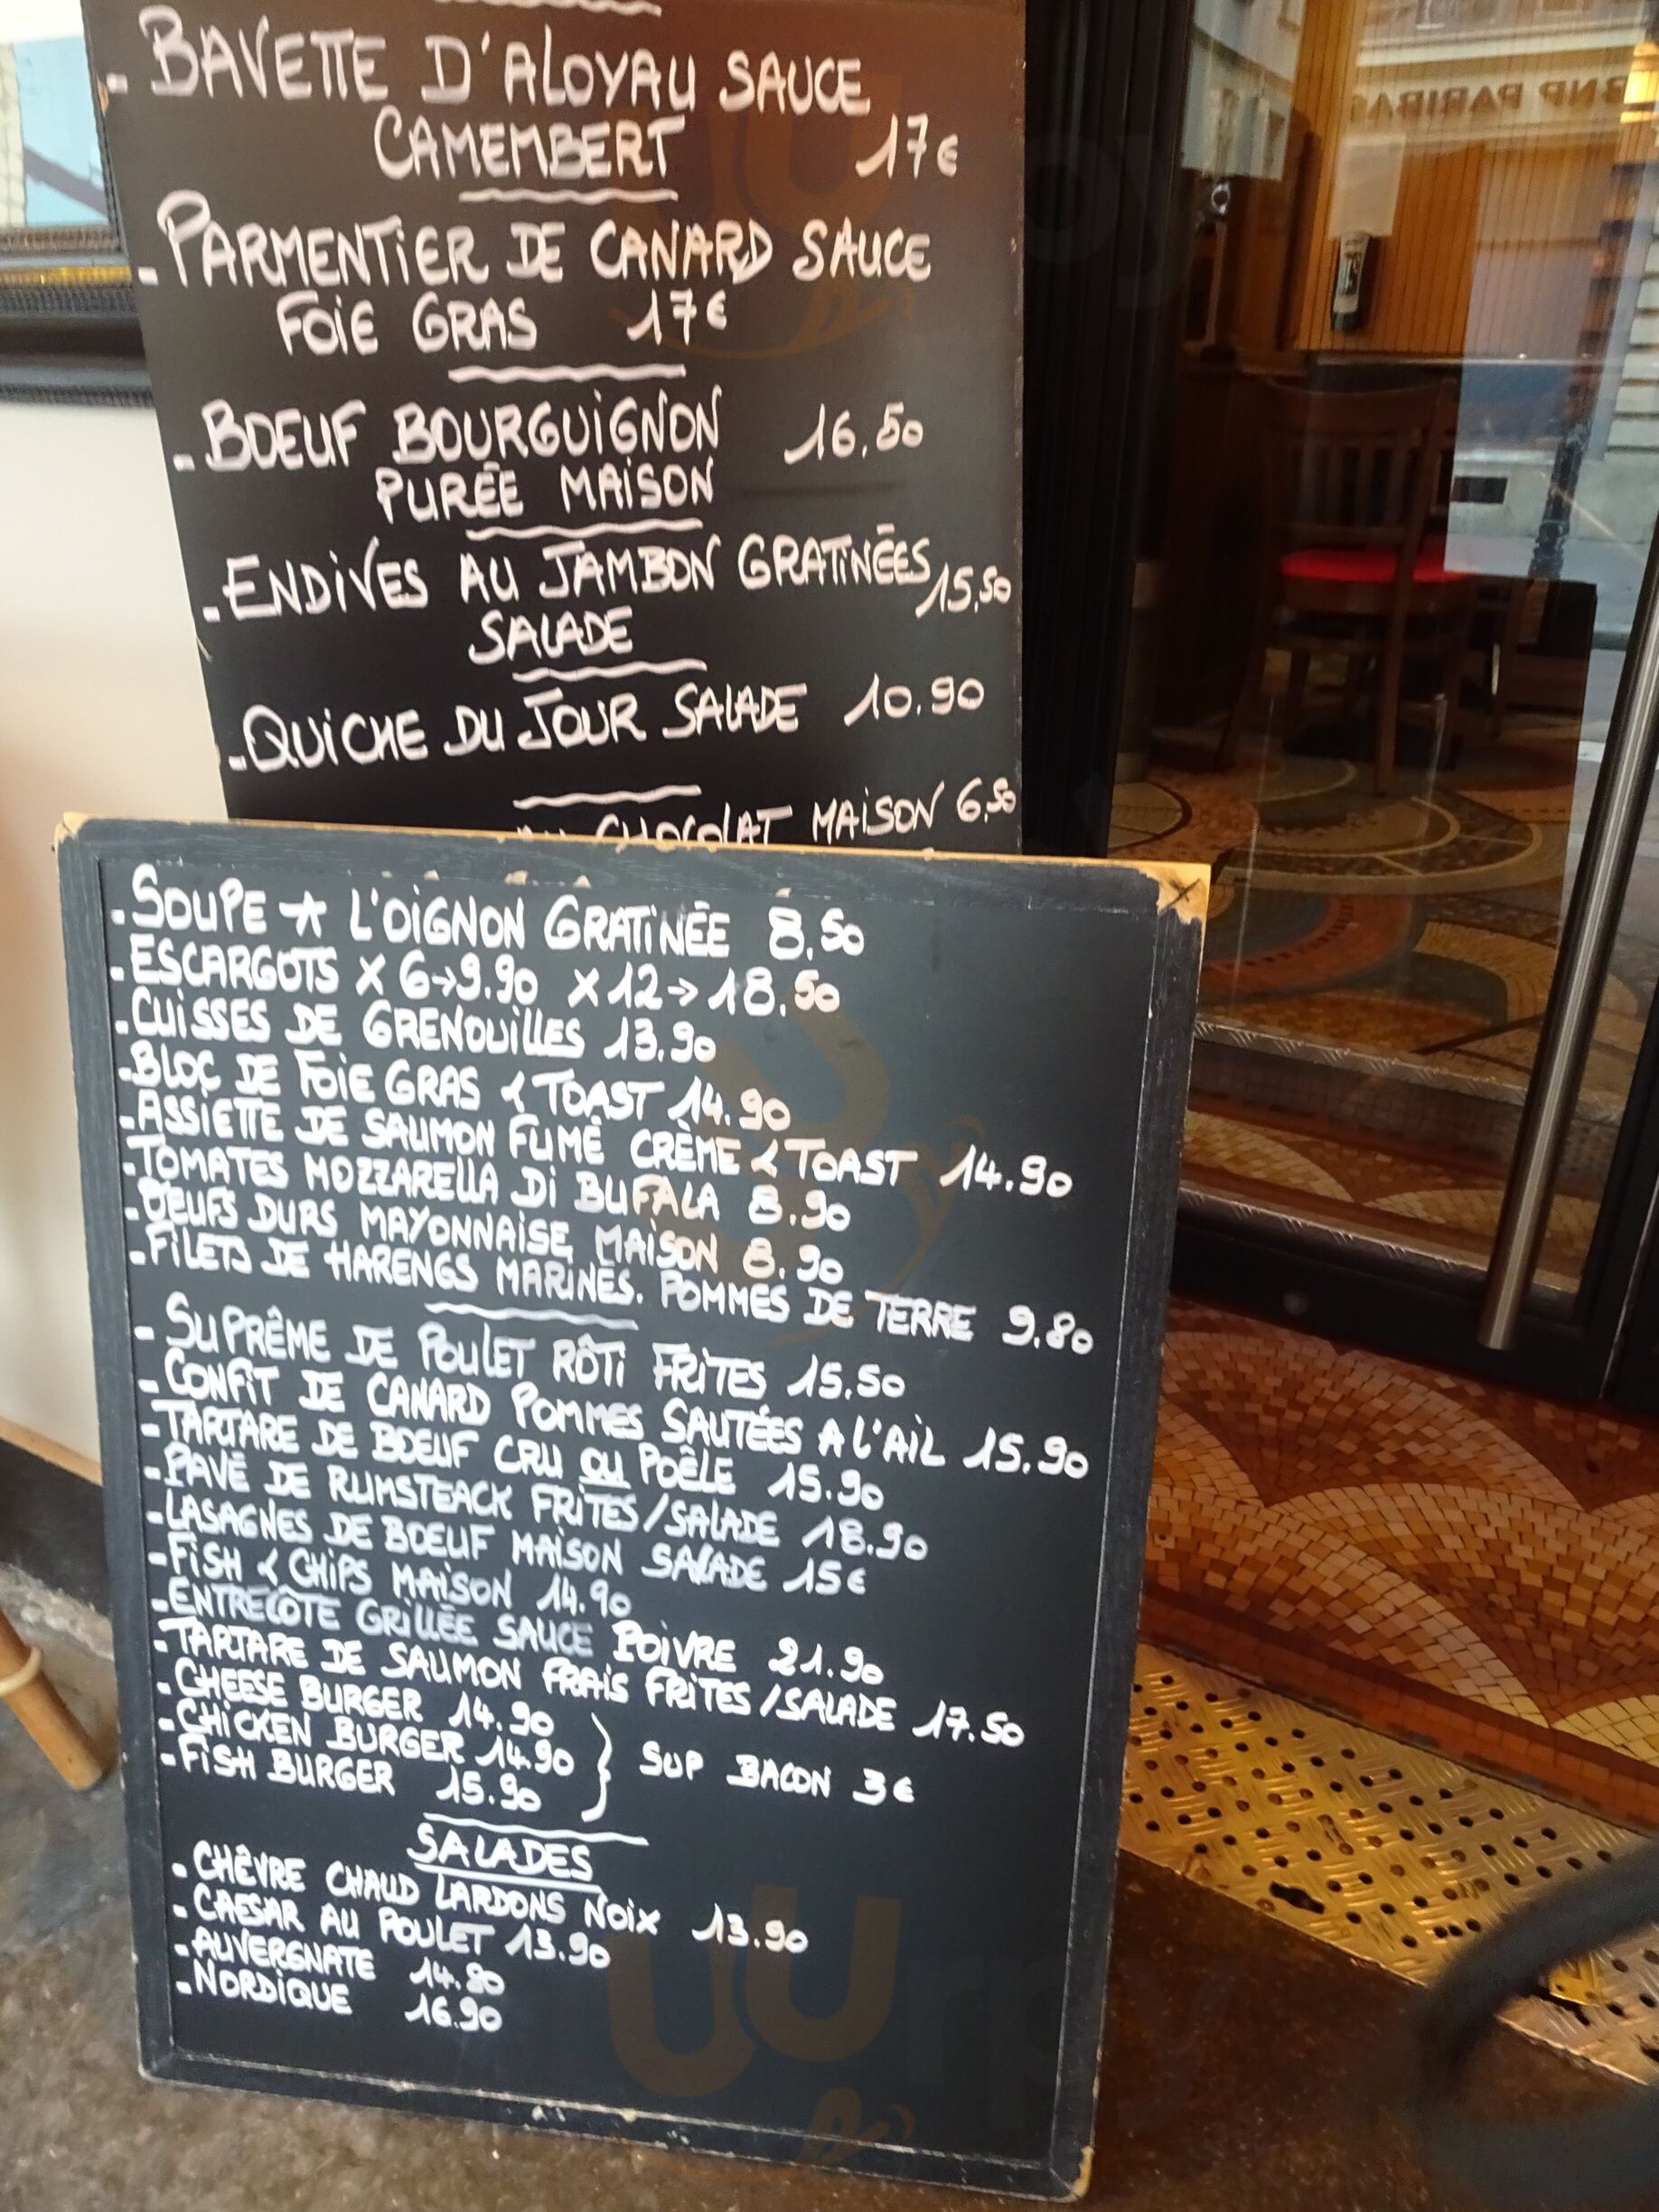 - BAVETTE D'ALOYAU SAUCE
CAMEMBERT 17€
- PARMENTIER DE CANARD SAUCE
FOIE GRAS 17€
- BOEUF BOURGUIGNON 16.50
PURÉE MAISON
- ENDIVES AU JAMBON GRATINÉES 15,50
SALADE
- QUICHE DU JOUR SALADE 10.90
CHOCOLAT MAISON 6,50
- SOUPE A L'OIGNON GRATINÉE 8,50
- ESCARGOTS X 6→9.90 X 12→18.50
- CUISSES DE GRENOUILLES 13.90
- BLOC DE FOIE GRAS & TOAST 14.90
- ASSIETTE DE SAUMON FUMÉ CRÈME & TOAST 14.90
- TOMATES MOZZARELLA DI BUFALA 8.90
- OEUFS DURS MAYONNAISE MAISON 8.90
- FILETS DE HARENGS MARINÉS. POMMES DE TERRE 9.80
- SUPRÊME DE POULET RÔTI FRITES 15,50
- CONFIT DE CANARD POMMES SAUTÉES A L'AIL 15.90
- TARTARE DE BOEUF CRU OU POÊLE 15.90
- PAVÉ DE RUMSTEACK FRITES/SALADE 18.90
- LASAGNES DE BOEUF MAISON SALADE 15€
- FISH & CHIPS MAISON 14.90
- ENTRECÔTE GRILLÉE SAUCE POIVRE 21.90
- TARTARE DE SAUMON FRAIS FRITES/SALADE 17.50
- CHEESE BURGER 14.90
- CHICKEN BURGER 14.90 } SUP BACON 3€
- FISH BURGER 15.90
SALADES
- CHÈVRE CHAUD LARDONS NOIX 13.90
- CAESAR AU POULET 13.90
- AUVERGNATE 14.80
- NORDIQUE 16.90
BNP PARIBAS